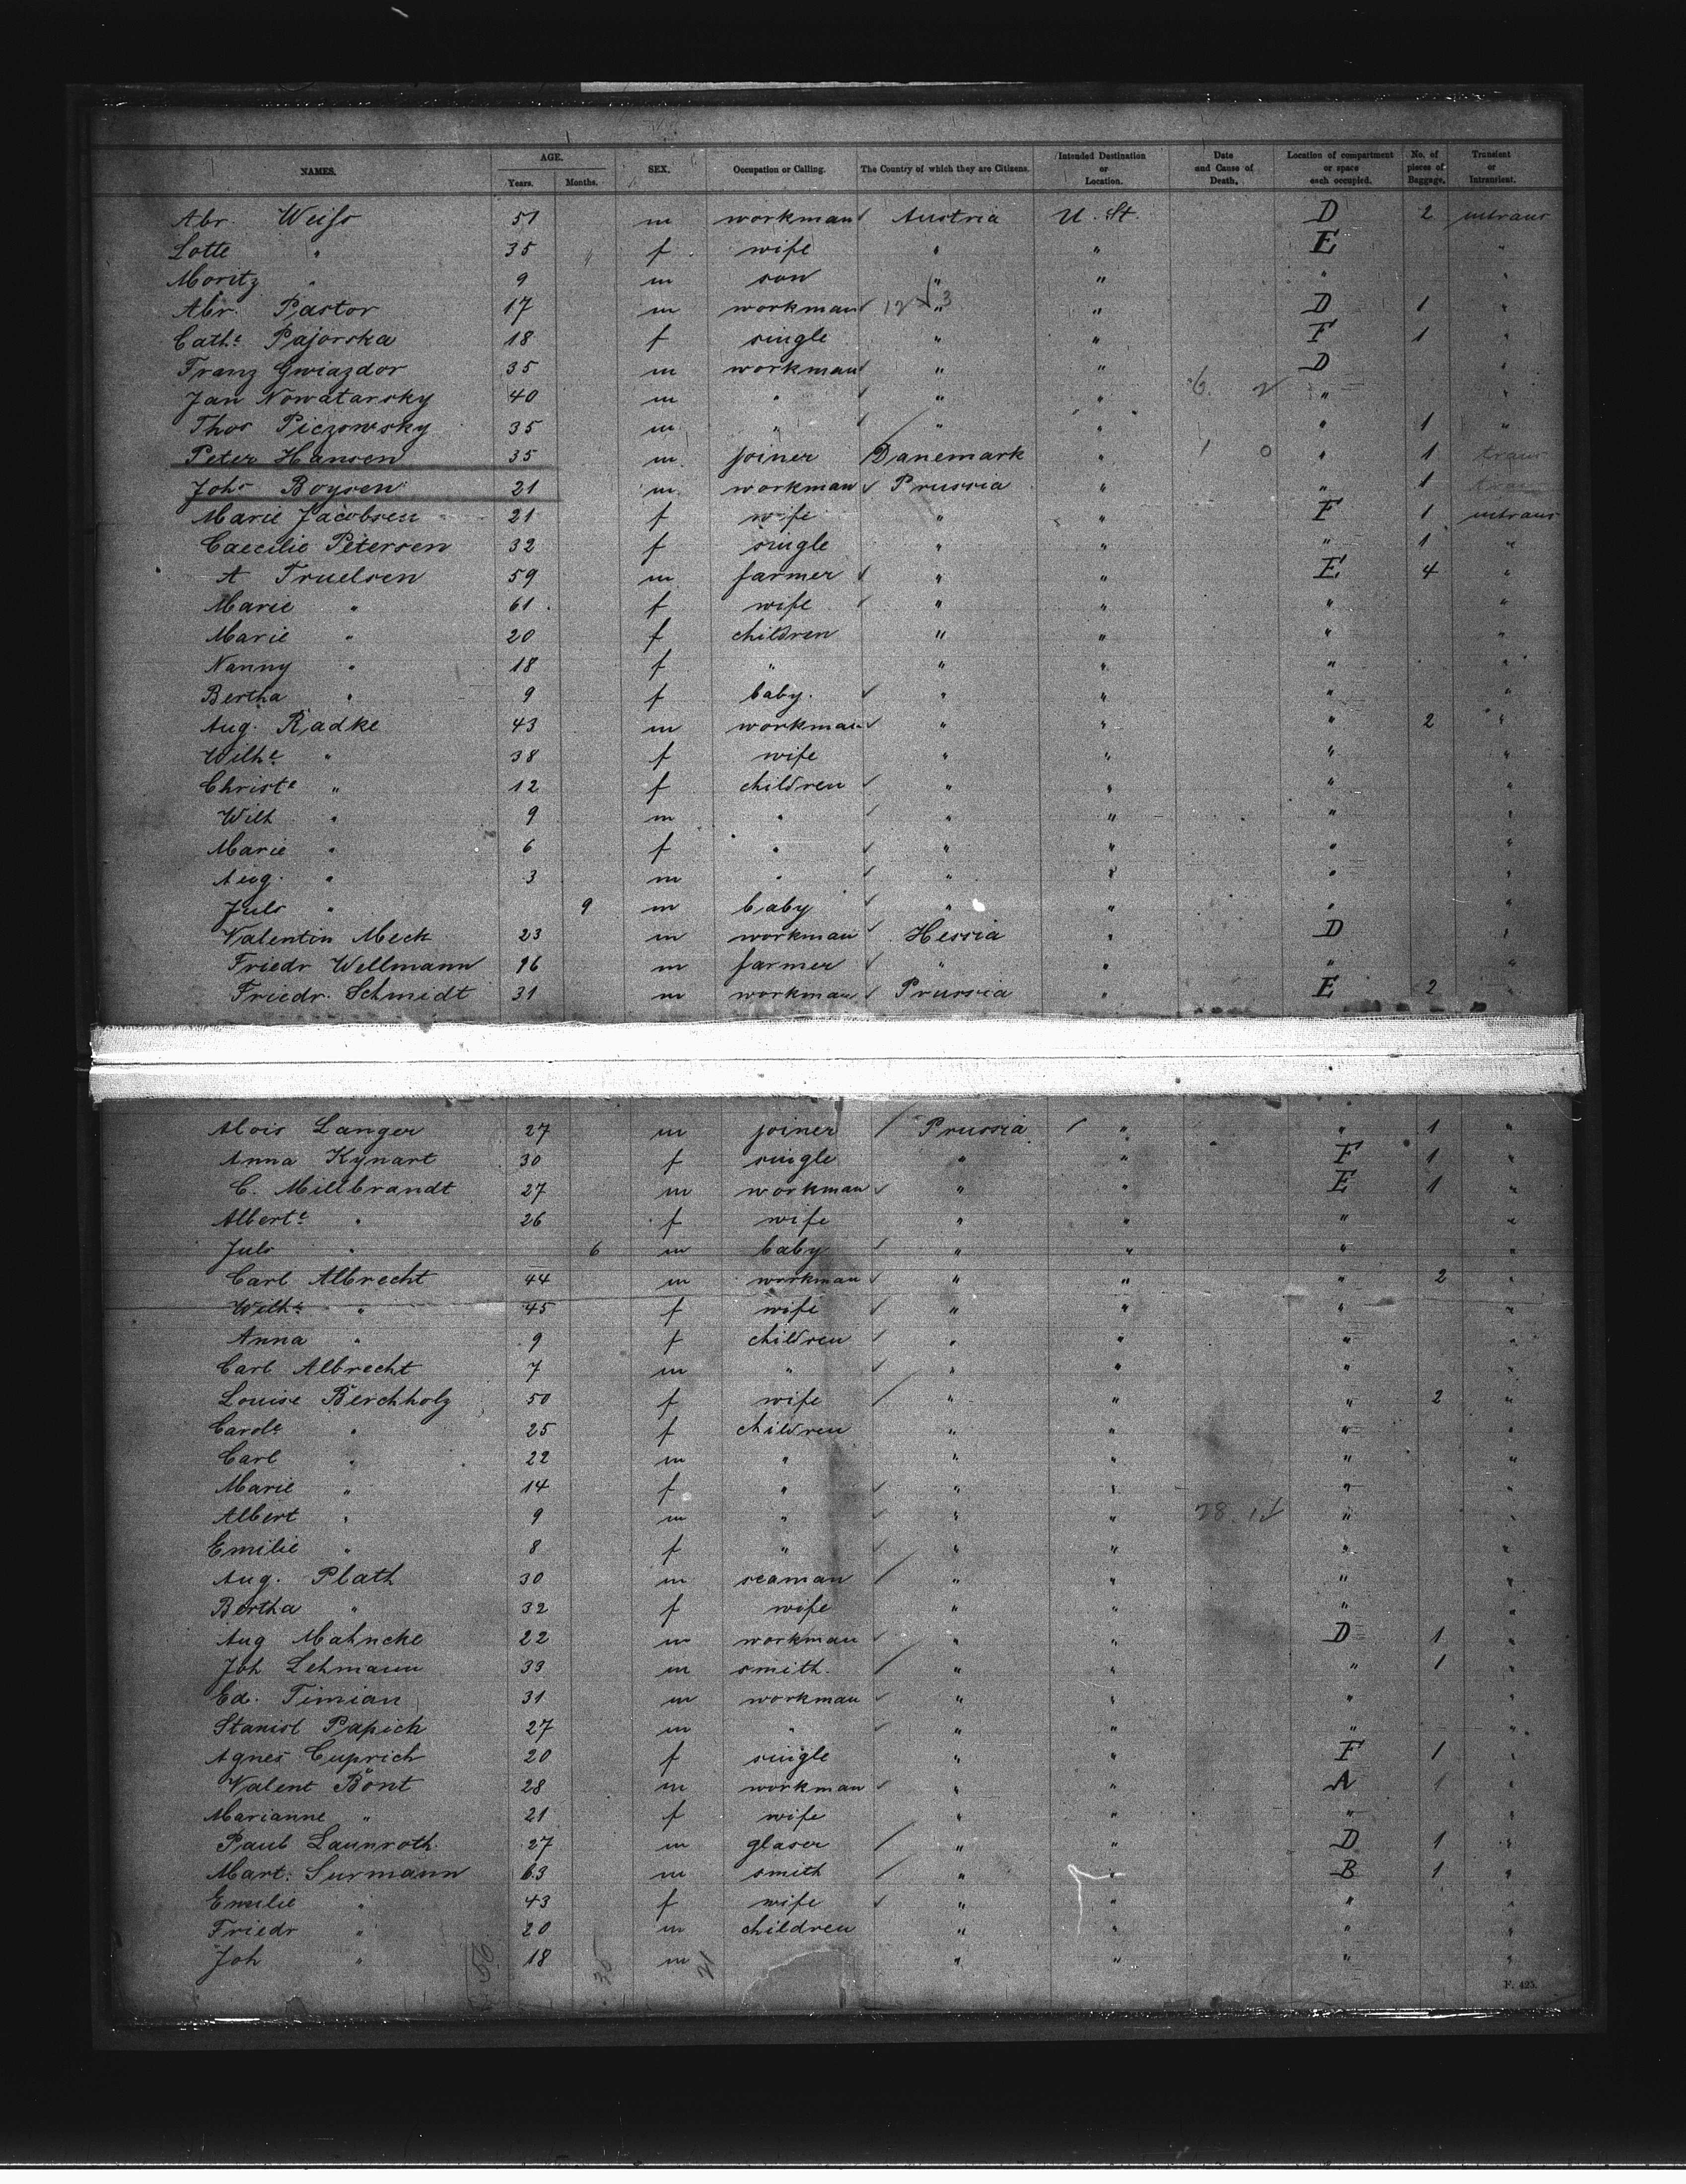 NAMES. AGE. Years. Months. SEX. Occupation or Calling. The Country of which they are Citizens. Intended Destination or Location. Date and Cause of Death. Location of compartment or space each occupied. No. of pieces of Baggage. Transient or Intransient.
Abr. Weiss 51 m workman Austria U. St. D 2 intrans
Lotte " 35 f wife " " E "
Moritz " 9 m son " " " "
Abr. Pastor 17 m workman " " D 1 "
Cathe Pajorska 18 f single " " F 1 "
Franz Gwiazdor 35 m workman " " D "
Jan Nowatarsky 40 m " " " " "
Thos Piczowsky 35 m " " " " 1 "
Peter Hansen 35 m joiner Danemark " " 1 trans
Johs Boysen 21 m workman Prussia " " 1 trans
Marie Jacobsen 21 f wife " " F 1 intrans
Caecilie Petersen 32 f single " " " 1 "
A Truelsen 59 m farmer " " E 4 "
Marie " 61 f wife " " " "
Marie " 20 f children " " " "
Nanny " 18 f " " " " "
Bertha " 9 f baby. " " " "
Aug. Radke 43 m workman " " " 2 "
Wilhe " 38 f wife " " " "
Christe " 12 f children " " " "
Wilh " 9 m " " " " "
Marie " 6 f " " " " "
Aug. " 3 m " " " " "
Juls " 9 m baby " " " "
Valentin Meck 23 m workman Hessia " D "
Friedr Wellmann 16 m farmer " " " "
Friedr. Schmidt 31 m workman Prussia " E 2 "
Alois Langer 27 m joiner Prussia " " 1 "
Anna Kynart 30 f single " " F 1 "
C. Millbrandt 27 m workman " " E 1 "
Alberte " 26 f wife " " " "
Juls " 6 m baby " " " "
Carl Albrecht 44 m workman " " " 2 "
Wilhe " 45 f wife " " " "
Anna " 9 f children " " " "
Carl Albrecht 7 m " " " " "
Louise Berchholz 50 f wife " " " 2 "
Carole " 25 f children " " " "
Carl " 22 m " " " " "
Marie " 14 f " " " " "
Albert " 9 m " " " " "
Emilie " 8 f " " " " "
Aug. Plath 30 m seaman " " " "
Bertha " 32 f wife " " " "
Aug Mahncke 22 m workman " " D 1 "
Joh Lehmann 33 m smith. " " " 1 "
Ed. Timian 31 m workman " " " "
Stanisl Papich 27 m " " " " "
Agnes Cuprich 20 f single " " F 1 "
Valent Bönt 28 m workman " " A 1 "
Marianne " 21 f wife " " " "
Paul Launroth 27 m glaser " " D 1 "
Mart. Surmann 63 m smith " " B 1 "
Emilie " 43 f wife " " " "
Friedr " 20 m children " " " "
Joh " 18 m " " " "
F. 425.